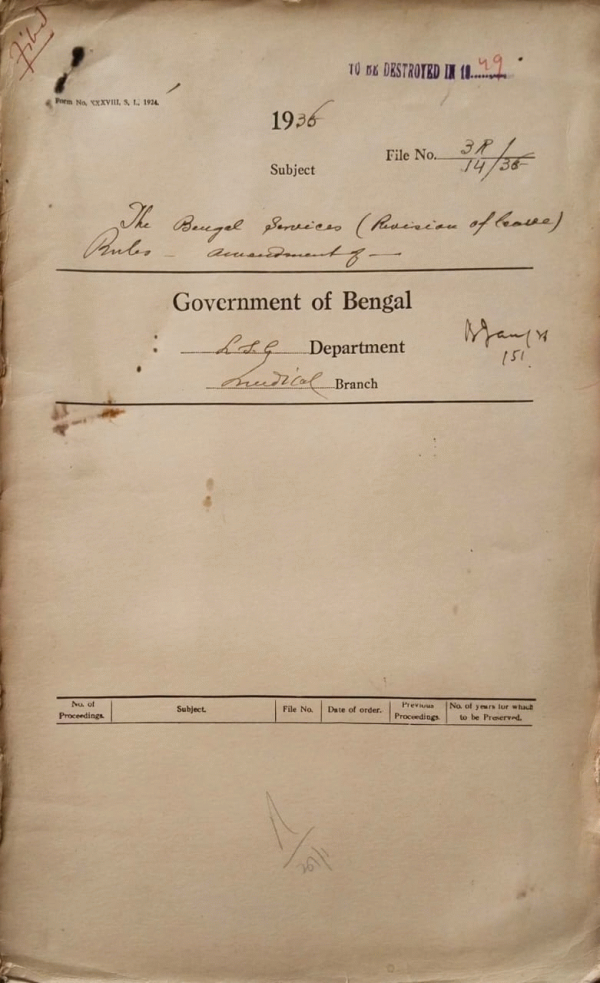 Filed
TO BE DESTROYED IN 19.......49
Form No. XXXVIII, S. I., 1934.
1935
File No. 3R/1
14/35
Subject
The Bengal Services (Revision of leave)
Rules — amendment of —
Government of Bengal
L.S.G Department
Medical Branch
151
No. of Proceedings. Subject. File No. Date of order. Previous Proceedings. No. of years for which to be Preserved.